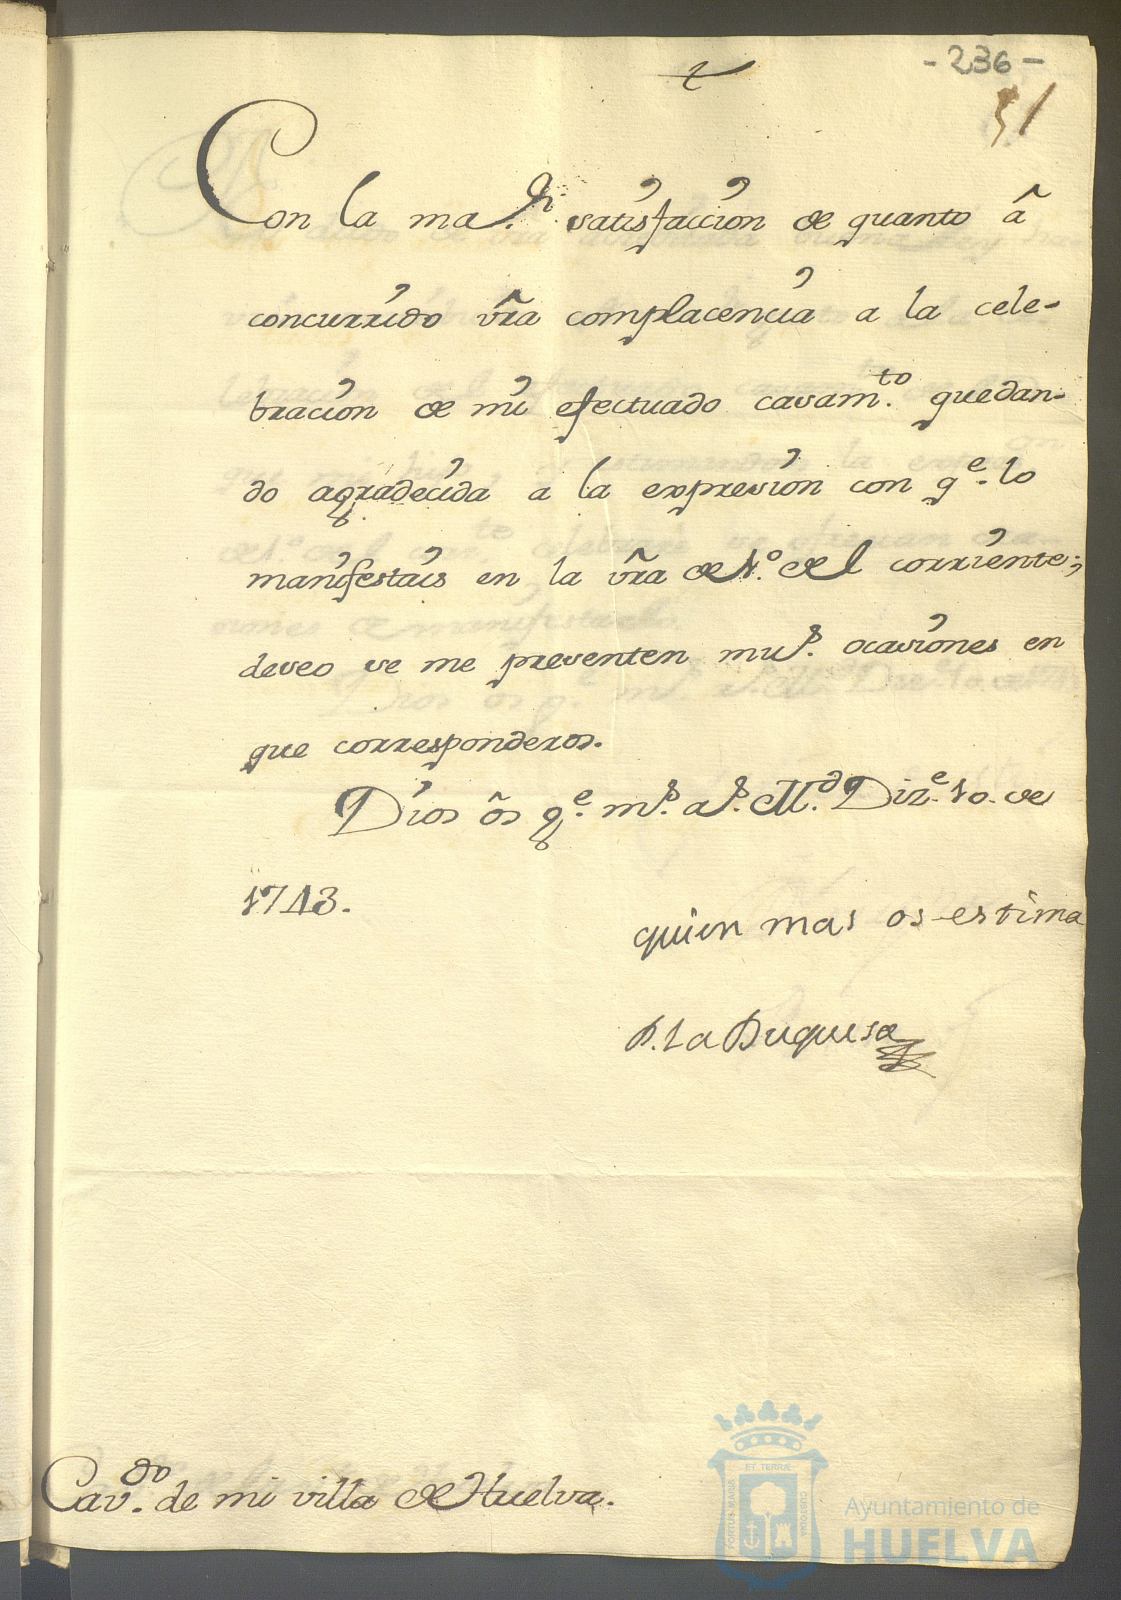 - 236 -
51
Con la ma.or satisfaccion de quanto â
concurrido vr̃a complacencia a la cele-
bracion de mi efectuado casam.to quedan-
do agradecida a la expresion con q.e lo
manifestais en la vr̃a de 1.º de el corriente;
deseo se me presenten mu.s ocasiones en
que corresponderos.
Dios os g.e m.s a.s M.d Diz.e 10. de
1713.
quien mas os estima
D. La Duquesa
Cav.do de mi villa de Huelva.
PORTUS MARIS
ET TERRÆ
CUSTODIA
Ayuntamiento de
HUELVA